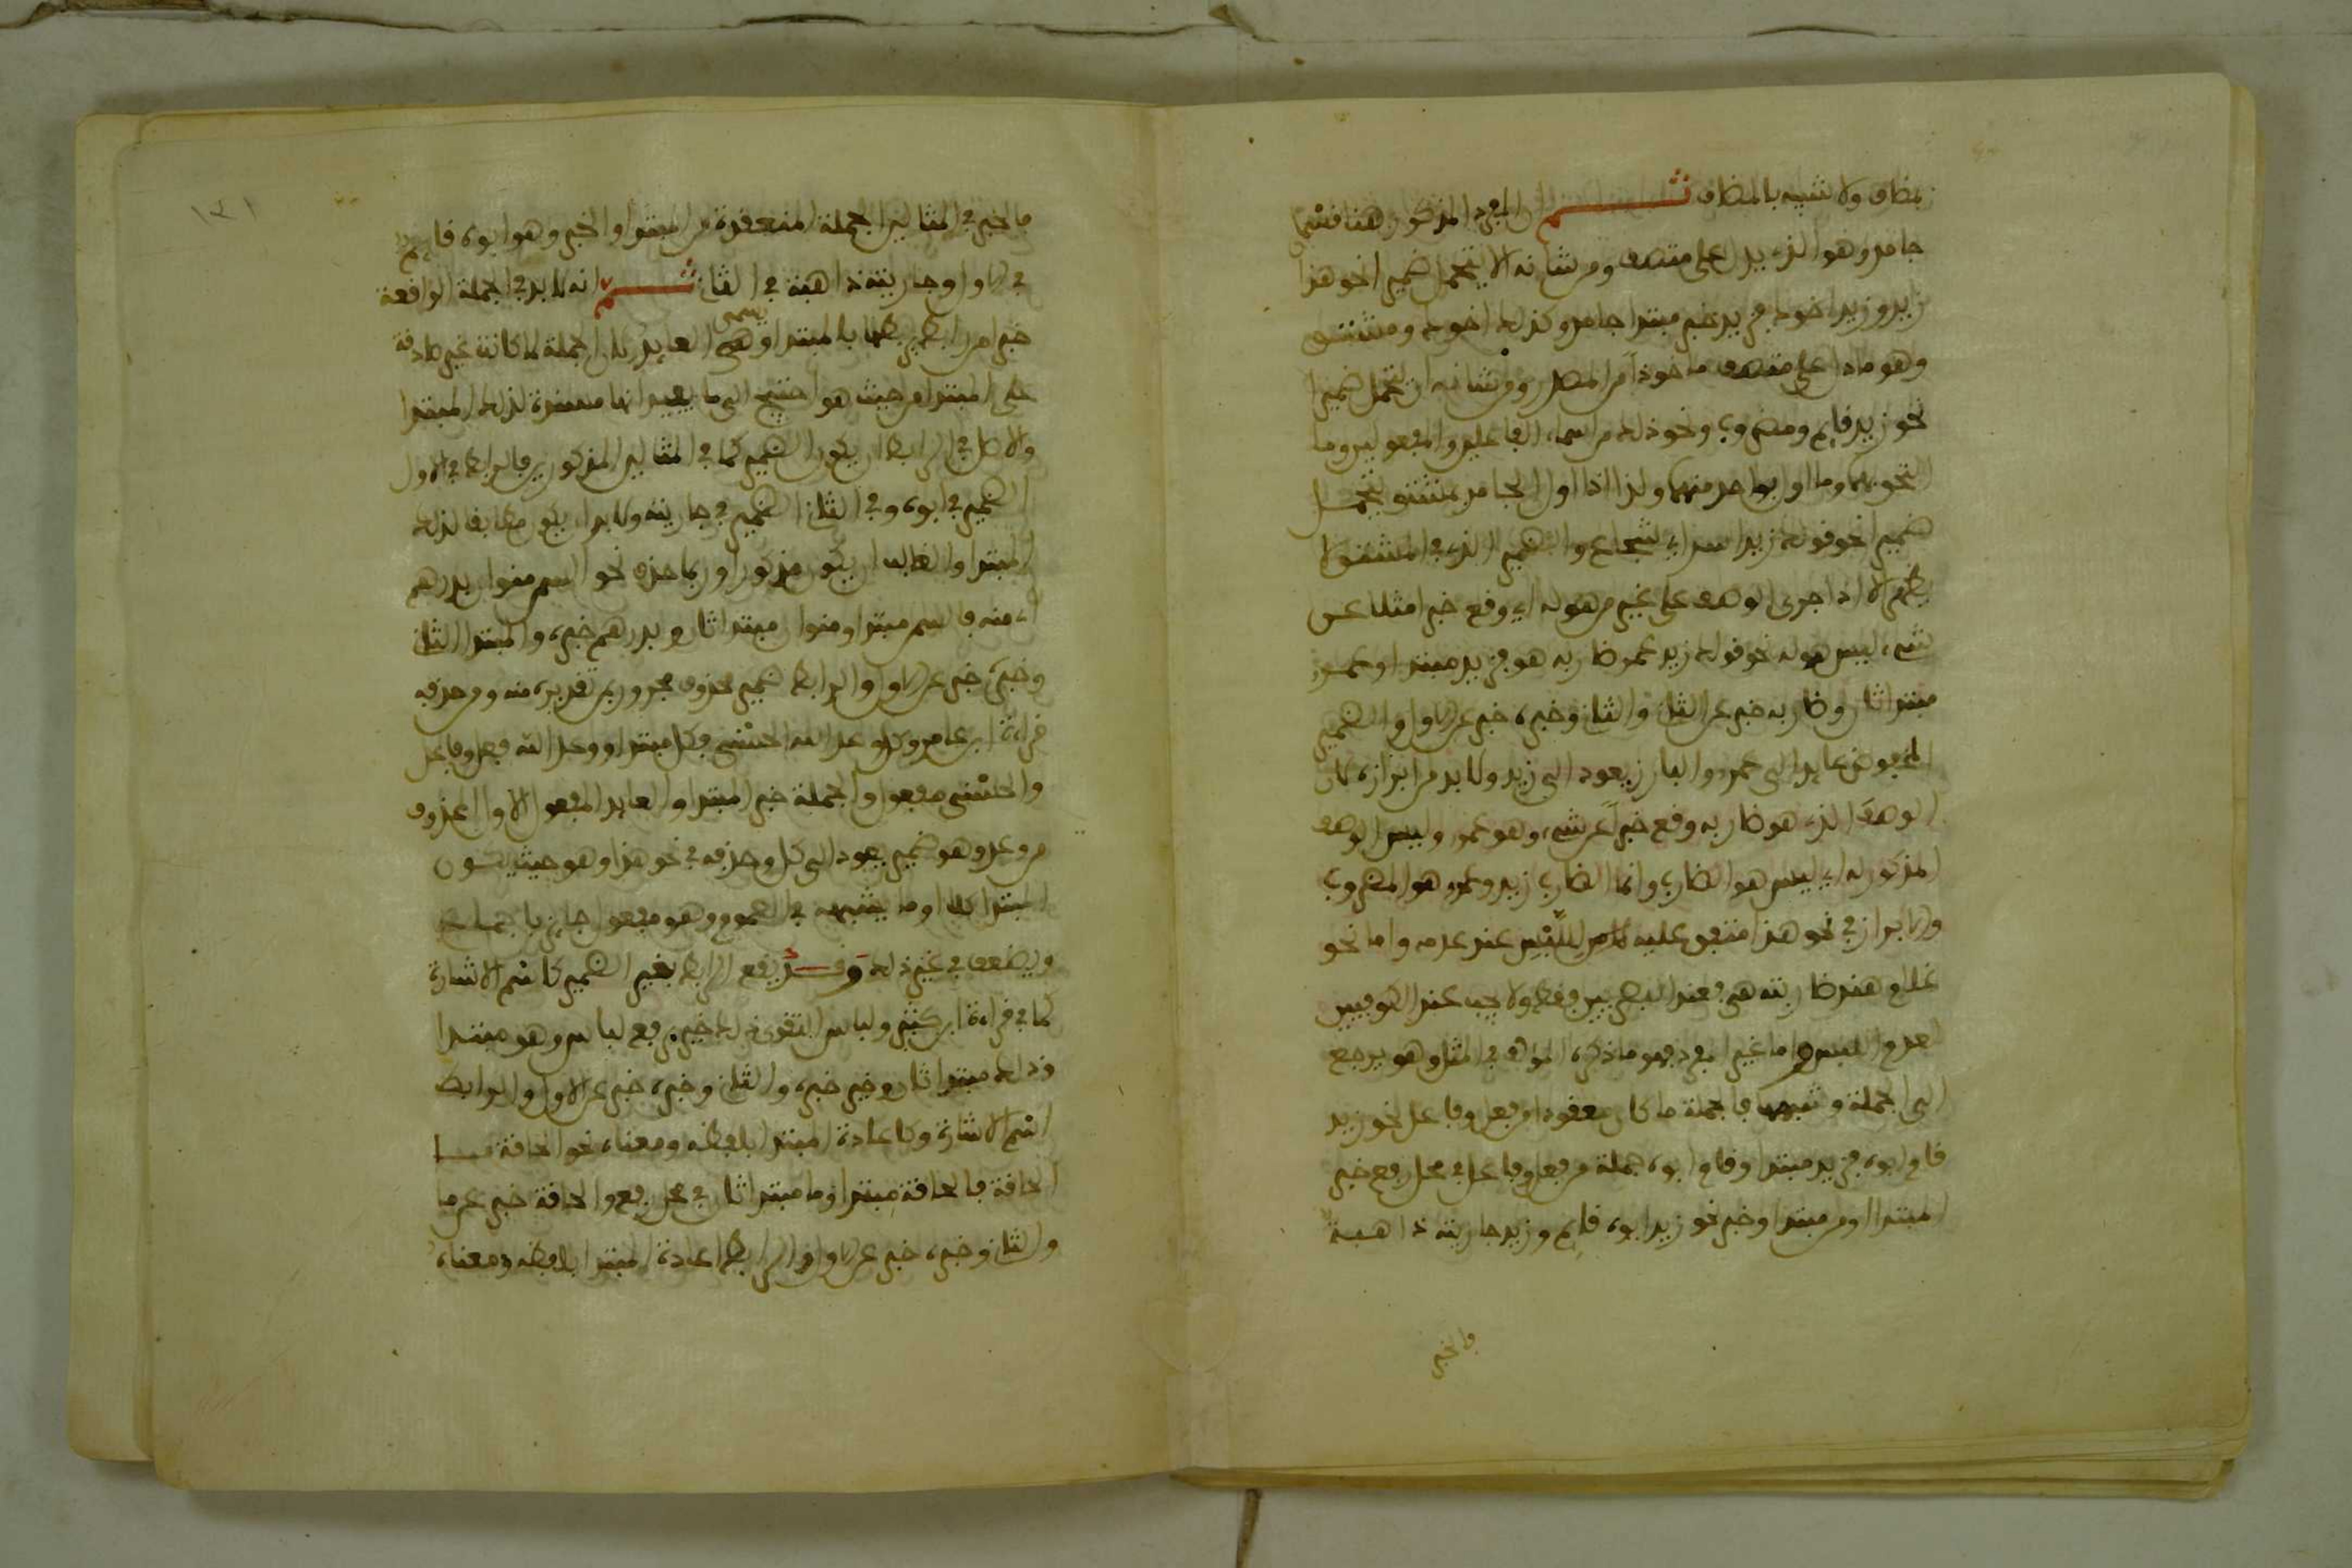 بمضاف ولا شبيه بالمضاف ثم المفرد المذكور هنا قسمان
جامد وهو الذي يدل على متصف ومن شانه الا يتحمل ضميرا نحو هذا
زيد وزيد اخوك فزيد خبر مبتدا جامد وكذلك اخوك ومشتق
وهو ما دل على متصف ماخوذا من المصدر ومن شانه ان يتحمل ضميرا
نحو زيد قايم ومضروب ونحو ذلك من اسماء الفاعلين والمفعولين وما
التحق بهما وما اول بواحد منهما ولذا اذا اول الجامد بمشتق يتحمل
ضميرا نحو قولك زيد اسد اي شجاع والضمير الذي في المشتق لا
يظهر الا اذا جرى الوصف على غير من هو له اي وقع خبرا مثلا عن
شيء ليس هو له نحو قولك زيد عمر ضاربه هو فزيد مبتدا وعمرو
مبتدا ثان وضاربه خبر عن الثاني والثاني وخبره خبر عن الاول والضمير
المخفوض عايد الى عمرو والبارز يعود الى زيد ولا بد من ابرازه لان
الوصف الذي هو ضاربه وقع خبرا عن شيء وهو عمر وليس الوصف
المذكور له اي ليس هو الضارب وانما الضارب زيد وعمرو هو المضروب
والابراز في نحو هذا متفق عليه للبس عند عدمه واما نحو
غلام هند ضاربته هي فعند البصريين فقط ولا يجب عند الكوفيين
لعدم اللبس واما غير المفرد فهو ما ذكره المولف في المثل وهو يرجع
الى الجملة وشبهها فالجملة ما كان معقودا من فعل وفاعل نحو زيد
قام ابوه فزيد مبتدا وقام ابوه جملة من فعل وفاعل في محل رفع خبر
المبتدا او من مبتدا وخبر نحو زيد ابوه قايم وزيد جاريته ذاهبة
فالخبر
١٣١
فالخبر في المثالين الجملة المنعقدة من المبتدا والخبر وهو ابوه قايم
في الاول وجاريته ذاهبة في الثاني ثم انه لا بد في الجملة الواقعة
خبرا من رابط يربطها بالمبتدا وهي يسمى العايد لان الجملة لما كانت غير صادقة
على المبتدا من حيث هو احتيج الى ما يفيد انها مسندة لذلك المبتدا
والاصل في الرابط ان يكون الضمير كما في المثالين المذكورين فالرابط في الاول
الضمير في ابوه وفي الثاني الضمير في جاريته ولا بد ان يكون مطابقا لذلك
المبتدا والغالب ان يكون مذكورا وربما حذف نحو السمن منوان بدرهم
اي منه فالسمن مبتدا ومنوان مبتدا ثان وبدرهم خبره والمبتدا الثاني
وخبره خبر عن الاول والرابط ضمير محذوف مجرور بمن تقديره منه ومن حذفه
قراءة ابن عامر وكل وعد الله الحسنى فكل مبتدا ووعد الله فعل وفاعل
والحسنى مفعول والجملة خبر المبتدا والعايد المفعول الاول المحذوف
من وعد وهو ضمير يعود الى كل وحذفه في نحو هذا وهو حيث يكون
المبتدا كلا او ما يشبهه في العموم وهو مفعول جايز باجماع
ويضعف في غير ذلك وقد يقع الرابط بغير الضمير كاسم الاشارة
كما في قراءة ابن كثير ولباس التقوى ذلك خير برفع لباس وهو مبتدا
وذلك مبتدا ثان وخير خبره والثاني وخبره خبر عن الاول والرابط
اسم الاشارة وكاعادة المبتدا بلفظه ومعناه نحو الحاقة ما
الحاقة فالحاقة مبتدا وما مبتدا ثان في محل رفع والحاقة خبر عن ما
والثاني وخبره خبر عن الاول والرابط اعادة المبتدا بلفظه ومعناه